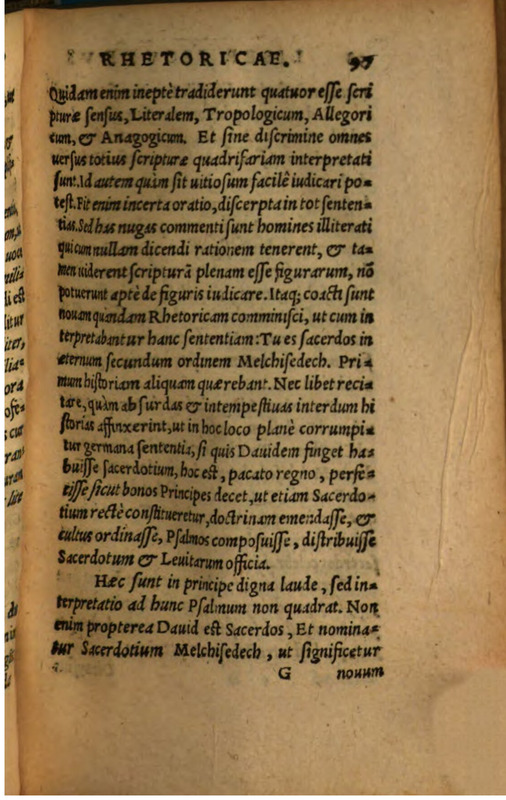 RHETORICAE. 97
Quidam enim ineptè tradiderunt quatuor esse scri
pturæ sensus, Literalem, Tropologicum, Allegori
cum, & Anagogicum. Et sine discrimine omnes
uersus totius scripturæ quadrifariam interpretati
sunt. Id autem quàm sit uitiosum facilè iudicari po=
test. Fit enim incerta oratio, discerpta in tot senten=
tias. Sed has nugas commenti sunt homines illiterati
qui cum nullam dicendi rationem tenerent, & ta=
men uiderent scripturā plenam esse figurarum, nō
potuerunt aptè de figuris iudicare. Itaq; coacti sunt
nouam quandam Rhetoricam comminisci, ut cum in
terpretabantur hanc sententiam: Tu es sacerdos in
æternum secundum ordinem Melchisedech. Pri=
mum historiam aliquam quærebant. Nec libet reci=
tare, quàm absurdas & intempestiuas interdum hi
storias affinxerint, ut in hoc loco planè corrumpi=
tur germana sententia, si quis Dauidem finget ha=
buisse sacerdotium, hoc est, pacato regno, perfe=
cisse sicut bonos Principes decet, ut etiam Sacerdo=
tium rectè constitueretur, doctrinam emendasse, &
cultus ordinasse, Psalmos composuisse, distribuisse
Sacerdotum & Leuitarum officia.
Hæc sunt in principe digna laude, sed in=
terpretatio ad hunc Psalmum non quadrat. Non
enim propterea Dauid est Sacerdos, Et nomina=
tur Sacerdotium Melchisedech, ut significetur
G nouum